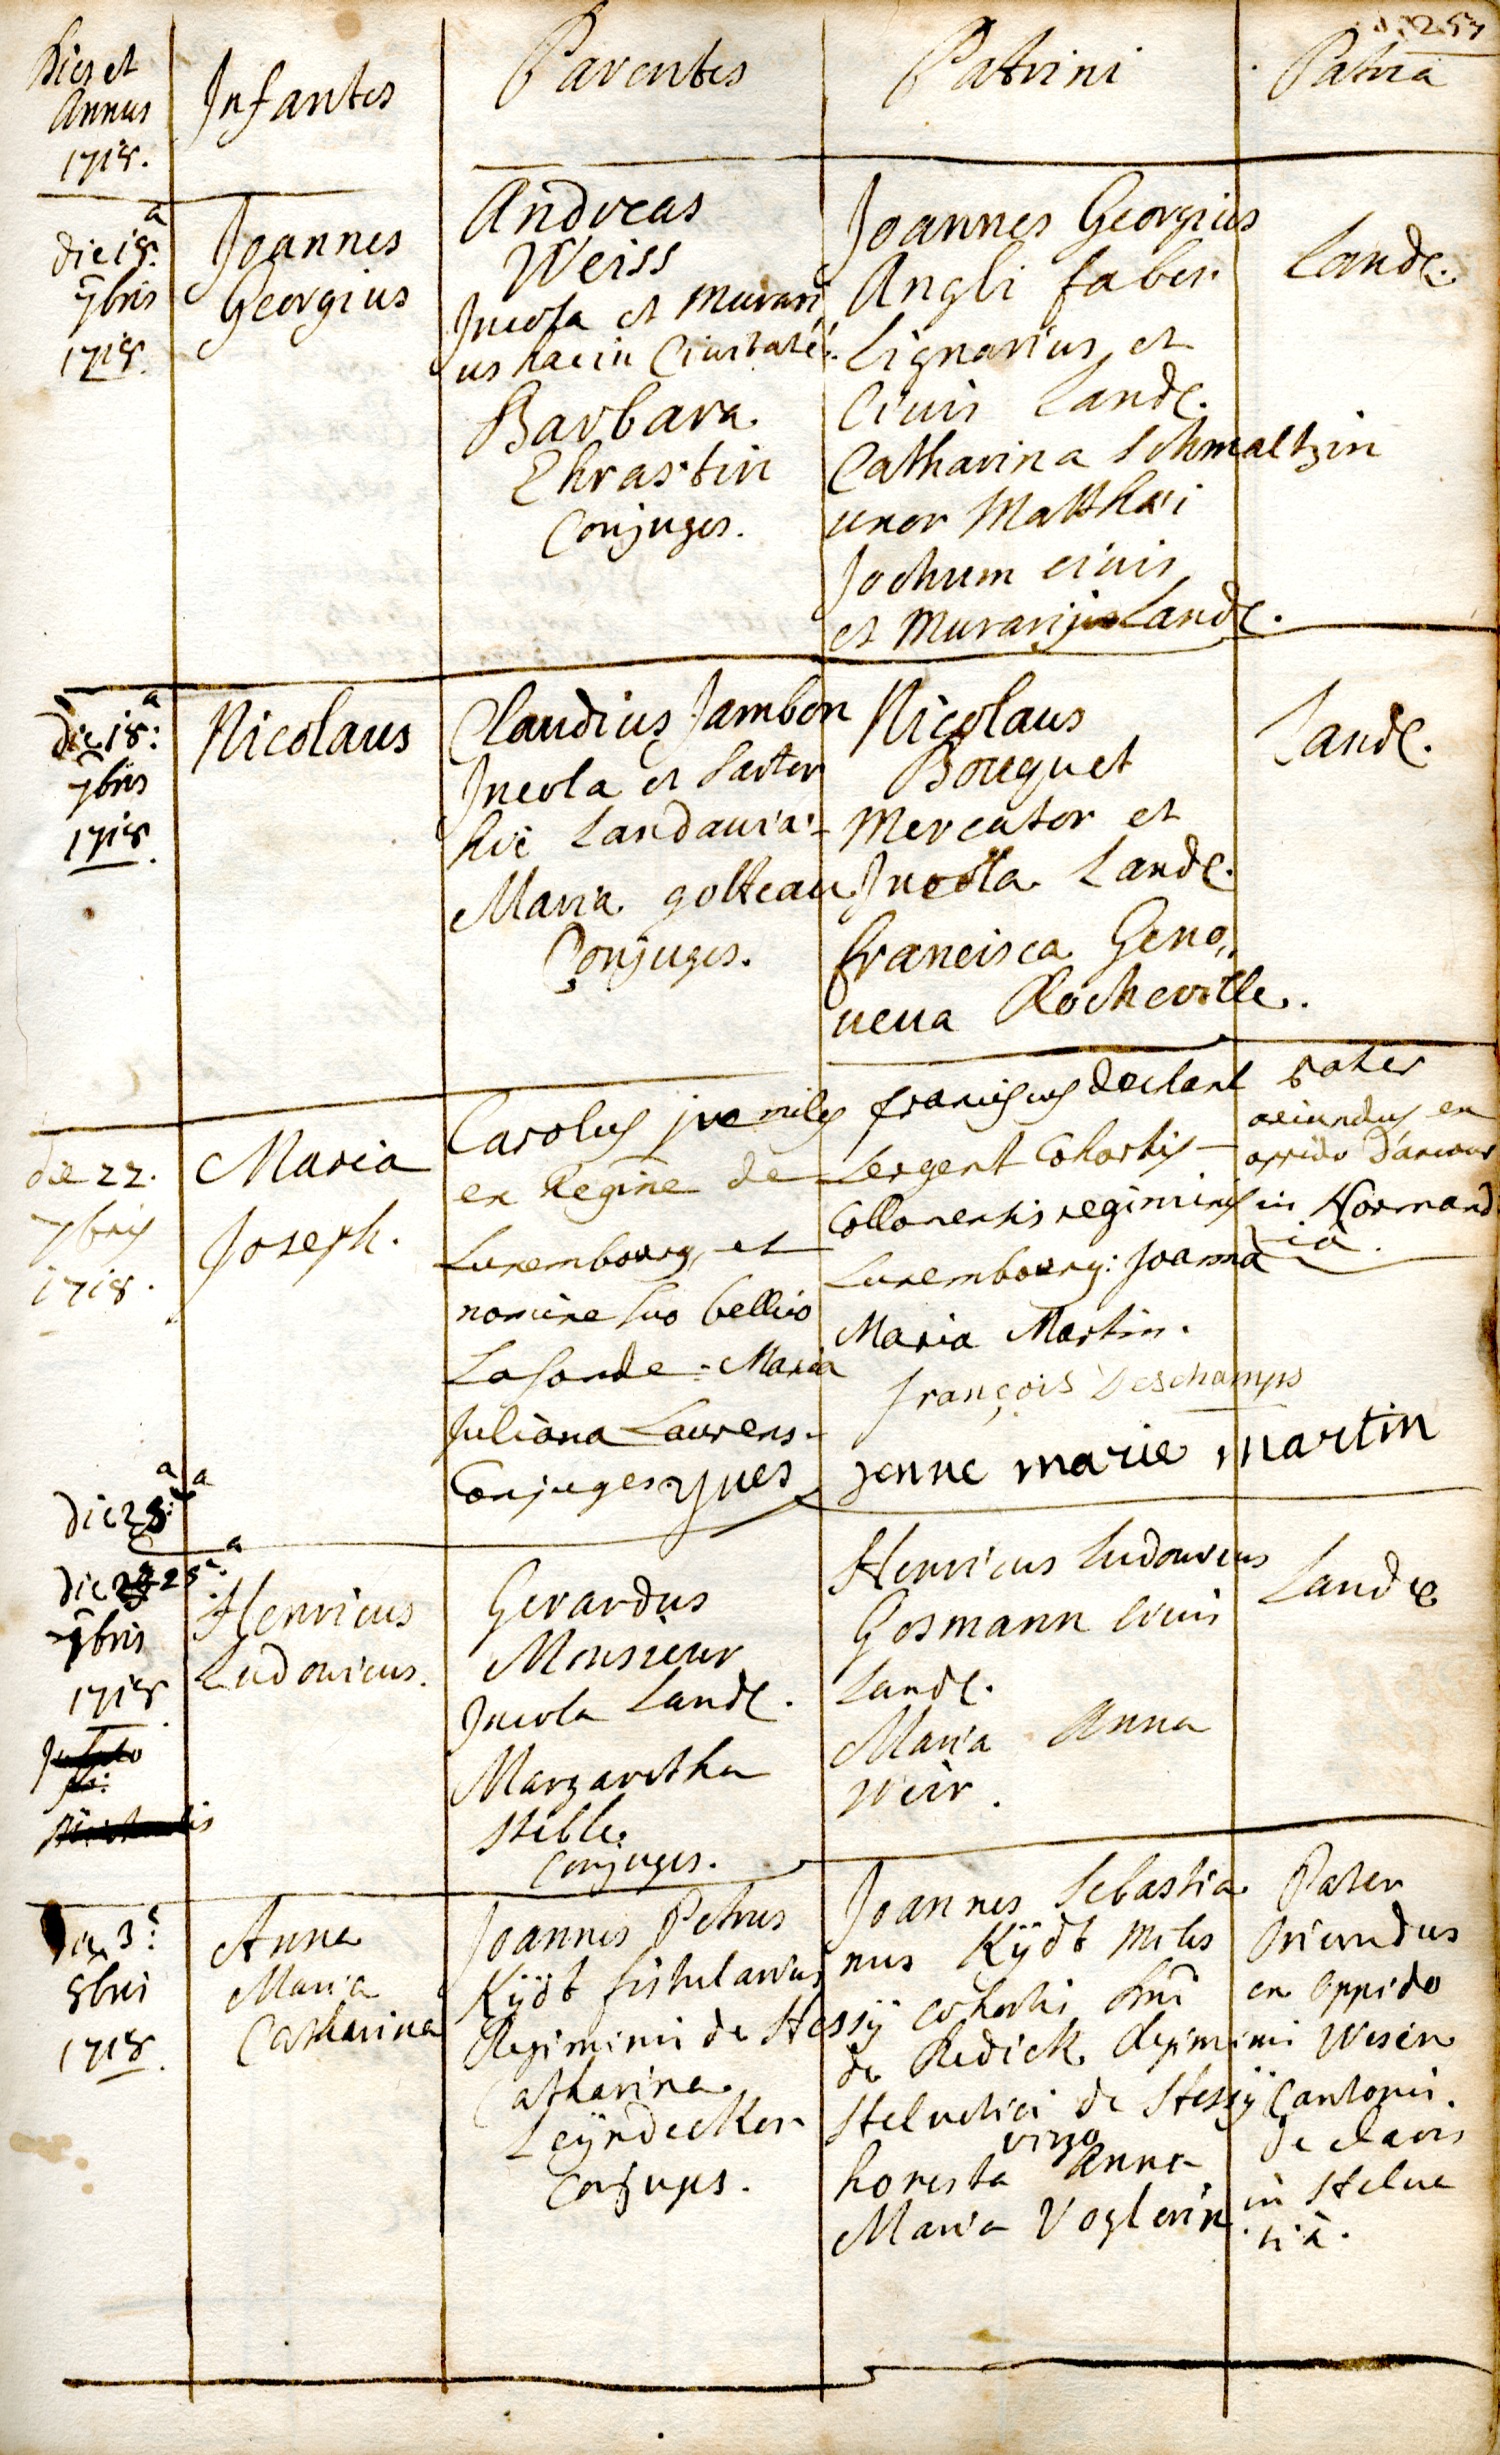 257
Dies et
Annus
1718.
Infantes
Parentes
Patrini
Patria
die 18.a
7bris
1718.
Joannes
Georgius
Andreas
Weiss
Incola et murari
us hac in Ciuitate.
Barbara
Ehrastin
Conjuges.
Joannes Georgius
Angli faber
lignarius et
Ciuis Landę.
Catharina Schmaltzin
uxor Matthæi
Jochum ciuis
et murarij Landę.
Landę.
die 18.a
7bris
1718.
Nicolaus
Claudius Jambon
Incola et Sartor
hic Landauiæ
Maria golteau
Conjuges.
Nicolaus
Bouquet
Mercator et
Incola Landę.
francisca Geno,,
ueua Rocheville.
Landę.
die 22.
7bris
1718.
Maria
Joseph.
Carolus jve miles
ex Regine de
Luxembourg, et
nomine suo bellico
Lafonde - Maria
Juliana Laurens.
Conjuges yues
franciscus
Sergent Cohortis
Collonensis regiminis
Luxembourg: Joanna
Maria Martin.
françois Deschamps
jenne marie martin
pater
oriundus ex
oppido d'
in Normand
iâ.
die 28.a
die 25.a
7bris
1718.
Henricus
Ludouicus.
Gerardus
Monsieur
Incola Landę.
Margaretha
Conjuges.
Henricus Ludouicus
Gosmann Ciuis
Landę.
Maria Anna
Weir.
Landę
die 3.a
8bris
1718.
Anna
Maria
Catharina
Joannes Petrus
Kÿdt fistularius
Regiminis de Hessÿ
Catharina
Leÿndecker
Conjuges.
Joannes Sebastia
nus Kÿdt Miles
cohortis Dni
de Redick Regiminis
Heluetici de Hessÿ
honesta virgo Anna
Maria Voglerin
Pater
Oriundus
ex Oppido
Wesen
Cantonis
de claris
in Helue
tiâ.